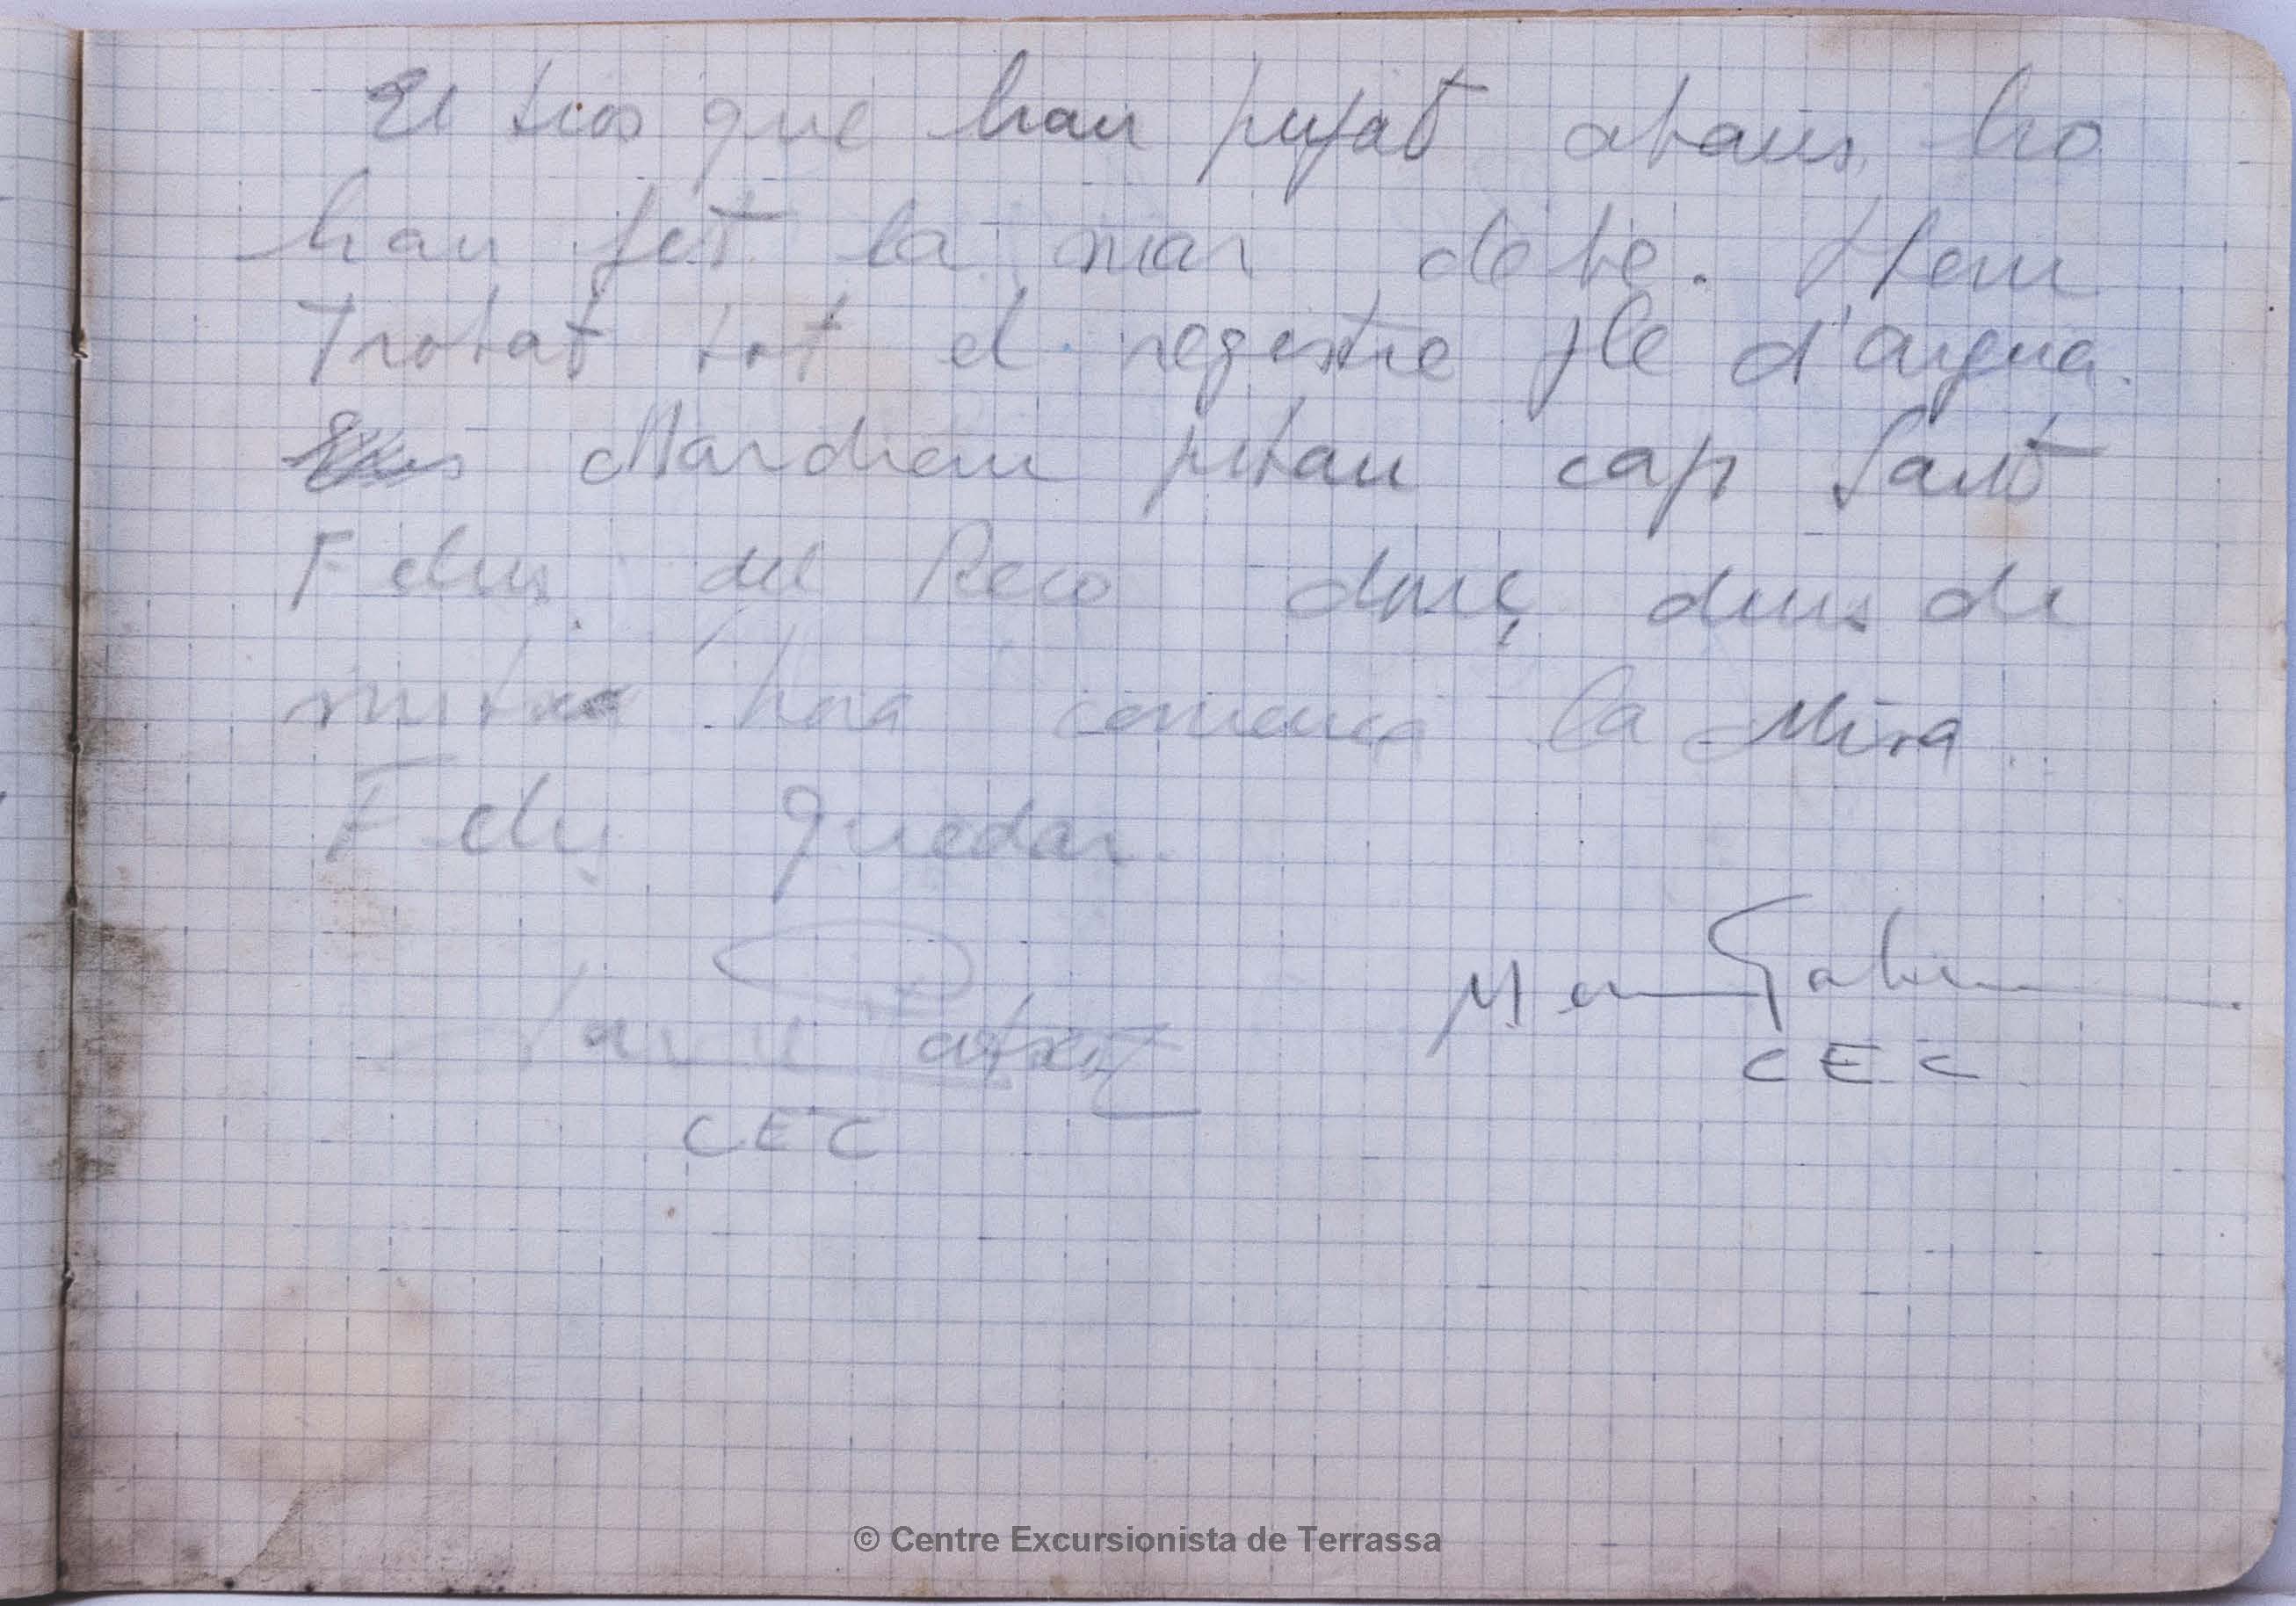 El tios que han pujat abans, ho
han fet la mar de be. Hem
Trobat tot el registre ple d'aigua.
Marchem pitan cap Sant
Feliu del Reco donç dins de
mitxa hora comença la Misa.
Feliç quedar.
CEC
CEC
© Centre Excursionista de Terrassa